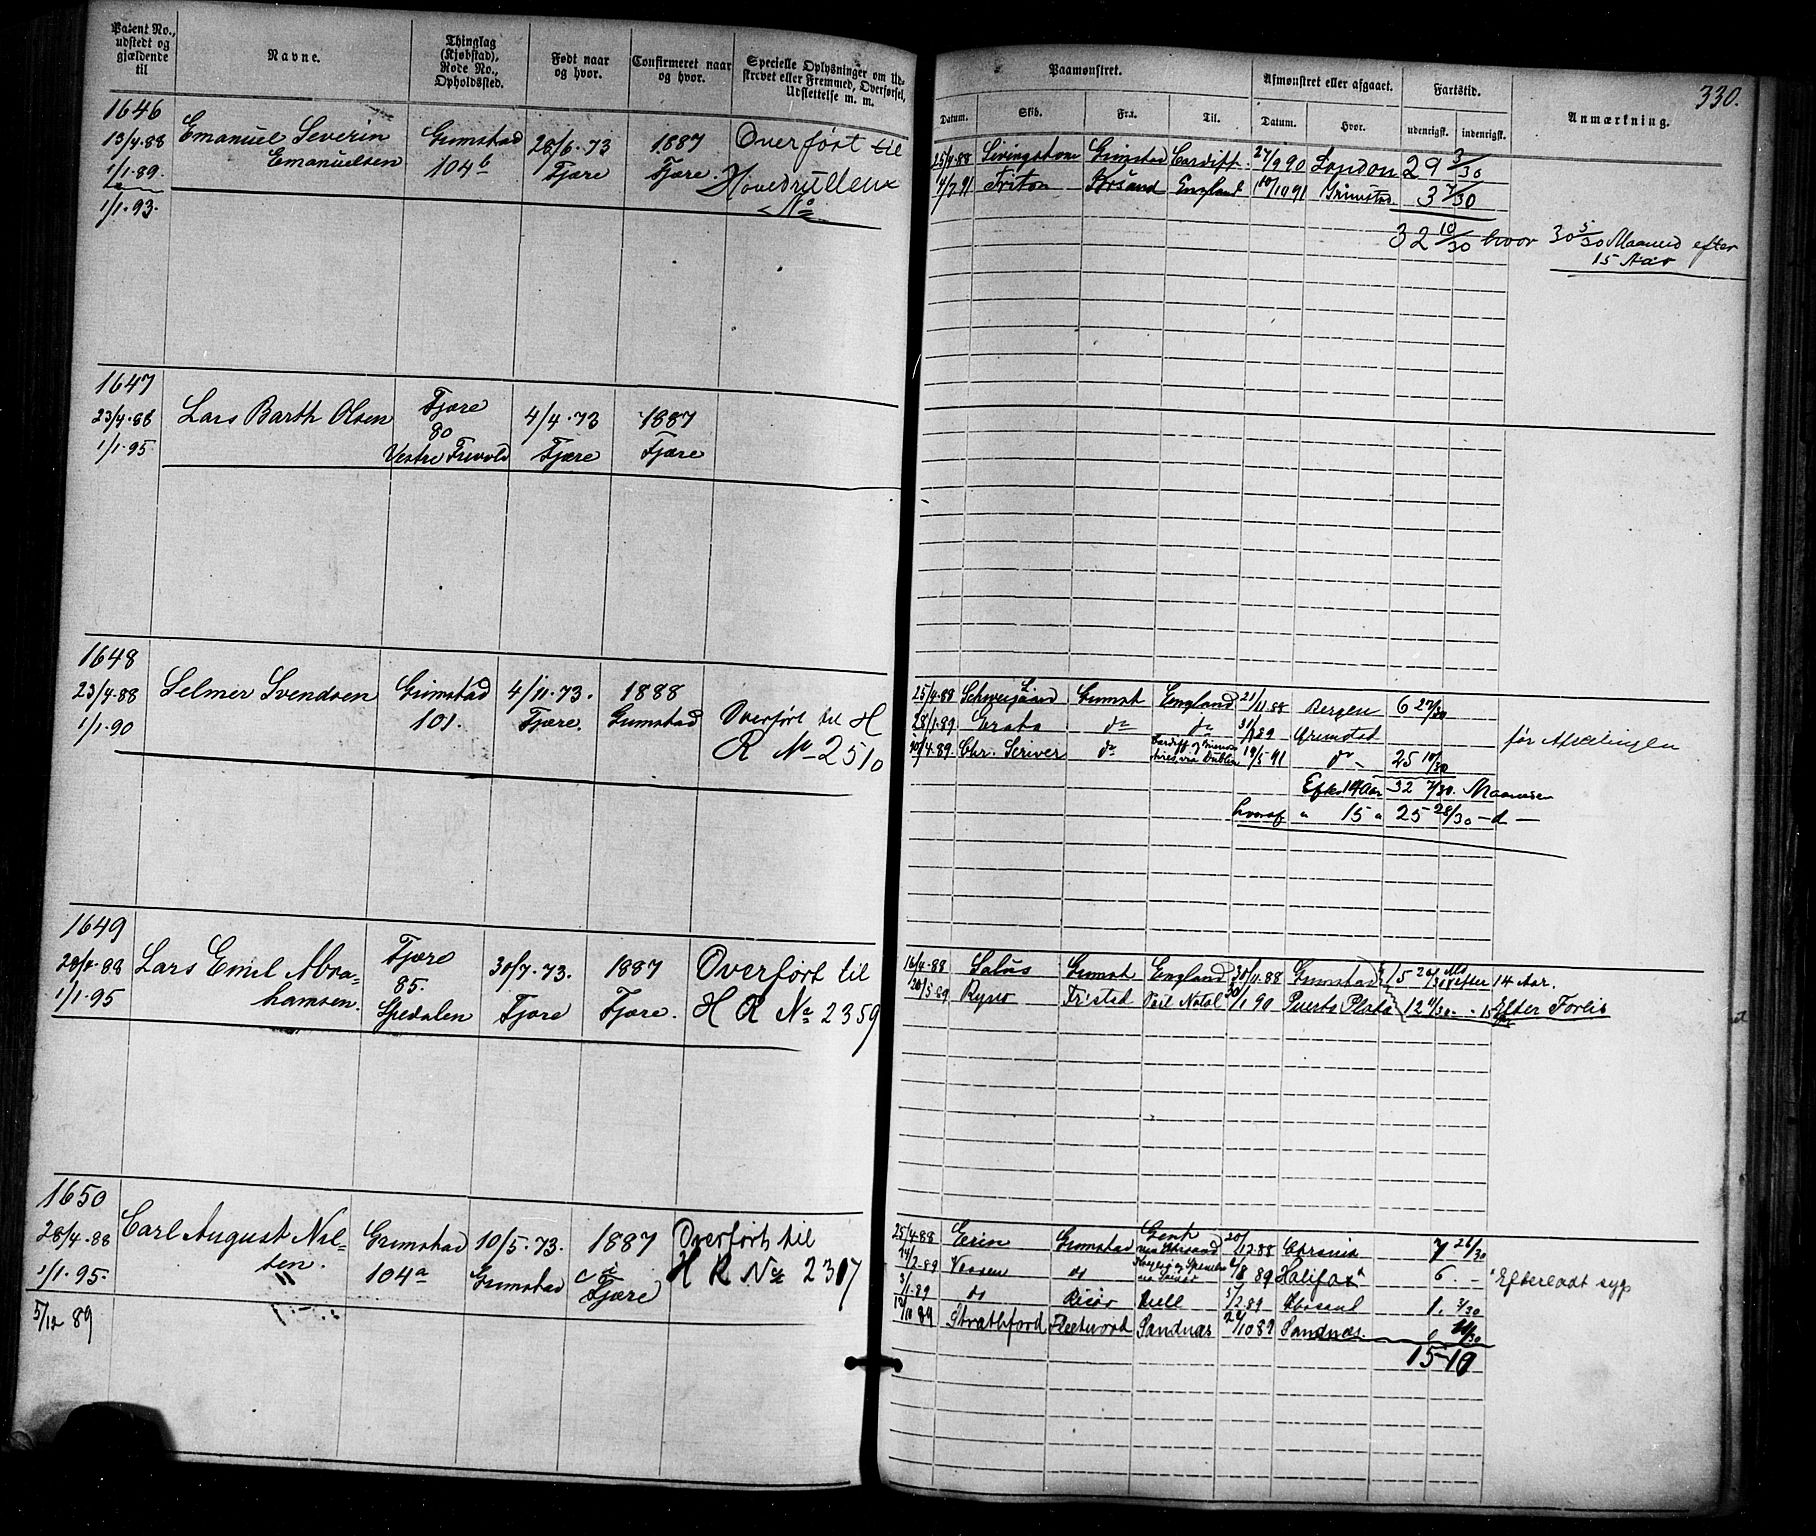 Patent No., udstedt og gjældende til
Navne.
Thinglag (Kjøbstad), Rode No., Opholdssted.
Født naar og hvor.
Confirmeret naar og hvor.
Specielle Oplysninger om Udskrevet eller Fremmed, Overførsel, Udslettelse m. m.
1646
13/4.88
1/1.89.
1/1.93.
Emanuel Severin
Emanuelsen
Grimstad
104b
28/6.73
Fjære
1887
Fjære.
Overført til
Hovedrullens
No
1647
23/4.88
1/1.95
Lars Barth Olsen
Fjære
80
Vestre Frevold
4/4.73
Fjære
1887
Fjære
1648
23/4.88
1/1.90
Selmer Svendsen
Grimstad
101.
4/11.73.
Fjære.
1888
Grimstad
Overført til H
R No 2510
1649
28/4.88
1/1.95
Lars Emil Abra-
hamsen.
Fjære
85.
Spedalen
30/7.73.
Fjære
1887
Fjære.
Overført til
H R No 2359
1650
28/4.88
1/1.95.
5/12 89
Carl August Niel-
sen.
Grimstad
104a
10/5.73.
Grimstad
1887
Fjære
Overført til
H R No 2317
330.
Paamønstret.
Afmønstret eller afgaaet.
Fartstid.
Anmærkning.
Datum.
Skib.
Fra.
Til.
Datum.
Hvor.
udenrigsk.
indenrigsk.
25/4.88 Livingstone Grimstad Cardiff 27/9 90 London 29 3/30
4/7 91 Triton Arsand England 10/10 91 Grimstad 3 7/30
32 10/30 hvor 30 5/30 Maaned efter
15 Aar
25/4.88 Schweigaard Grimst England 21/11.88 Bergen 6 27/30
28/1.89 Grata do do 31/ 89 Grimstad før Afseilingen
4.89 Chr. Scriver do via Dublin 19/5.91 do 25 10/30
Efter 14 Aar 32 7/30 Maaneder
hvoraf " 15 " 25 28/30 - d -
16/4.88 Salus Grimst England 30/11.88 Grimstad efter 14 Aar.
20/5.89 Ryno Fr.stad Port Natal 30/1 90 Puerto Plata 12 Efter Forlis
25/4 88 Erin Grimstad 20/12.88 Chrania 7 26/30
14/2.89 do 8 89 Halifax 6 - "Efterladt syg
3/1.89 do Risør Hull 5/2 89 1. 3/30
89 Strathford Fleetwood Sandnæs 10 89 Sandnæs.
15 10